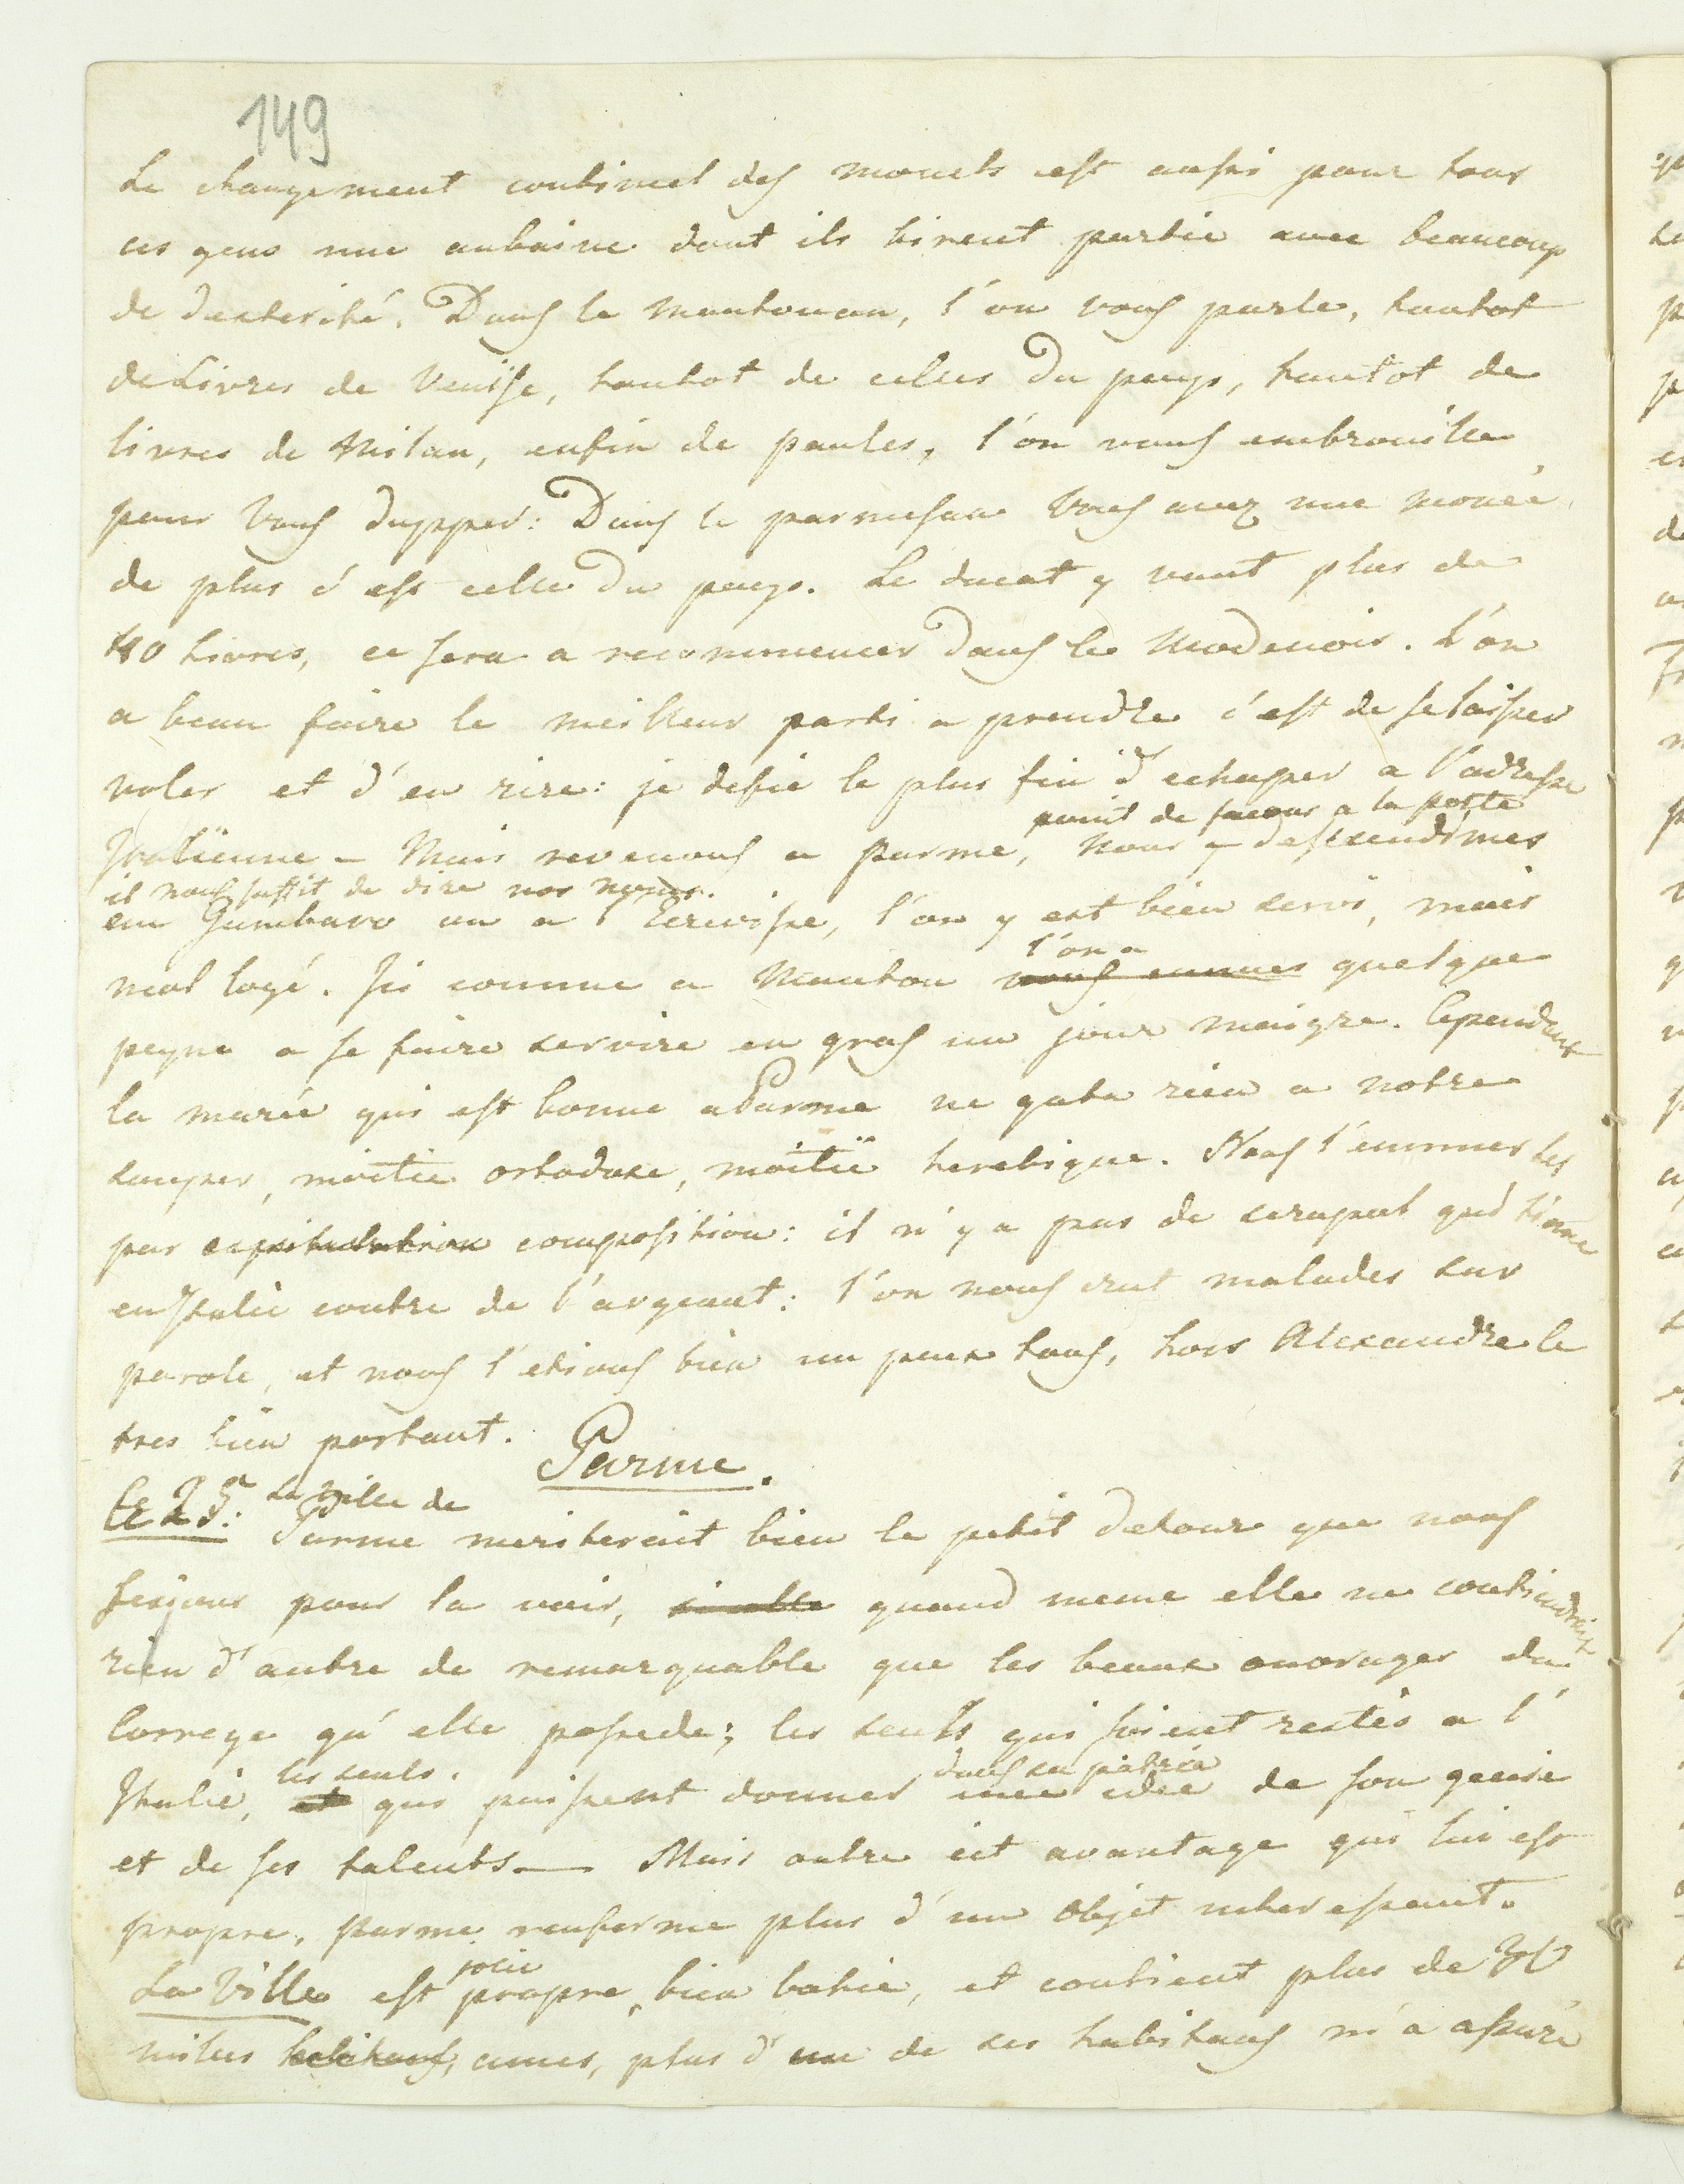 149
Le changement continuel des monets est aussi pour tous
ces gens une aubaine dont ils tirent partie avec beaucoup
de dexterité. Dans le mantouan, l'on vous parle, tantot
de Livres de Venise, tantot de celles du pays, tantot de
livres de Milan, enfin de paules, l'on vous embrouille
pour Vous dupper: Dans le parmesan Vous avez une monée
de plus c'est celle du pays. Le ducat y vaut plus de
40 Livres, ce sera a recommencer dans le Modenois. L'on
a beau faire le meilleur parti a prendre c'est de se laisser
voler et d'en rire: je defie le plus fin d'echaper a l'adresse
point de facons a la porte
Italienne - Mais revenons a Parme, nous y dessendimes
il nous suffit de dire nos noms.
au Gambaro ou a l'Ecrevisse, l'on y est bien servi, mais
l'on a
mal logé. Ici comme a Mantou nous eumes quelque
peyne a se faire servire en gras un jour maigre. Cependant
la marée qui est bonne a Parme ne gata rien a notre
souper, moitie ortodoxe, moitië heretique. Nous l'eummes
par capitulation composition: il n'y a pas de scrupul qui tienne
en Italie contre de l'argeant: l'on nous crut malades sur
parole, et nous l'etions bien un peux tous, hors Alexandre le
tres bien portant.
Parme.
La Ville de
Ce 25: Parme meriteroit bien le petit detour que nous
fesions pour la voir, si elle quand meme elle ne contiendroit
rien d'autre de remarquable que les beaux ouvrages du
Correge qu'elle possede; les seuls qui soient restés a l'
les seuls. dans sa patrie
Italie, et qui puissent donner une idée de son genie
et de ses talents — Mais outre cet avantage qui lui est
propre, Parme renferme plus d'un objet interessant.
jolie
La Ville est propre, bien batie, et contient plus de 30
milles habitans, ames, plus d'un de ses habitans m'a assuré